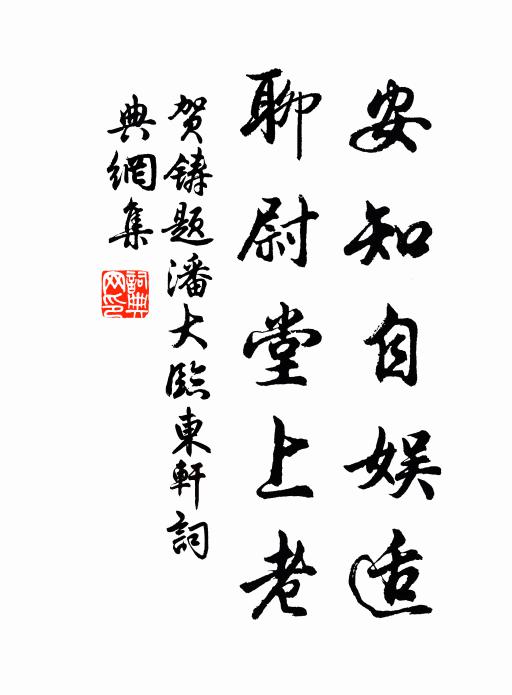 安知自娱适
聊尉堂上老
贺铸题潘大临東軒詞
典網集
詞典网印